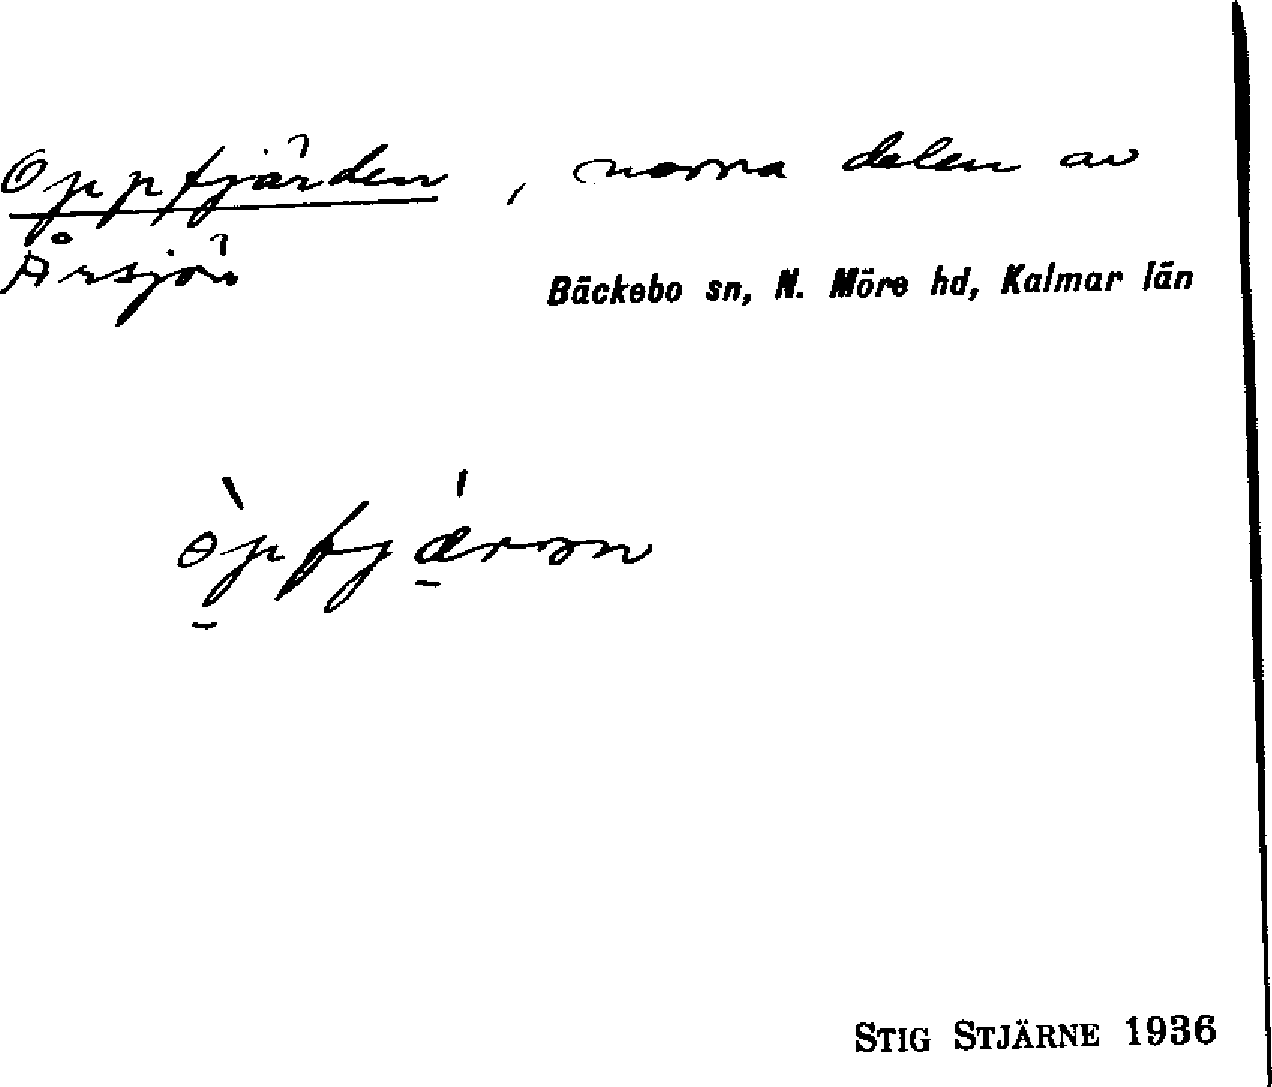 Oppfjärden, norra delen av
Årsjön
Bäckebo sn, N. Möre hd, Kalmar län
STIG STJÄRNE 1936